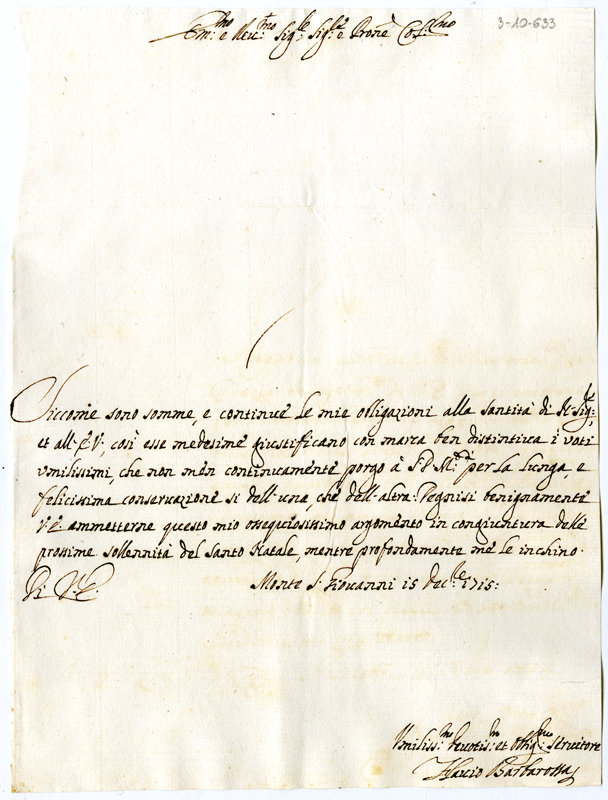 3-12-633
Em:mo e Rev:mo Sig:re Sig:re e Prone Col:mo
Siccome sono somme, e continue le mie obligazioni alla Santità di N. Sig:re,
et all' E.V., così esse medesime giustificano con marca ben distintiva i voti
umilissimi, che non men continuamente porgo à S.D.M.tà per la lunga, e
felicissima conservazione sì dell' una, che dell' altra: Degnisi benignamente
V.E. ammetterne questo mio ossequiosissimo argomento in congiuntura delle
prossime sollennità del Santo Natale, mentre profondamente me le inchino.
Di V.E.
Monte S. Giovanni 15 Dec:re 1715:
Umiliss:mo Devotis:mo et Oblig:mo Servitore
Flavio Barbarossa